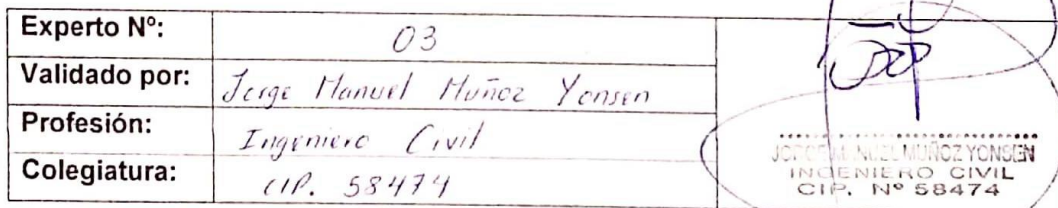 Experto Nº: 03
Validado por: Jorge Manuel Muñoz Yonsen
Profesión: Ingeniero Civil
Colegiatura: CIP. 58474
JORGE MANUEL MUÑOZ YONSEN
INGENIERO CIVIL
CIP. Nº 58474